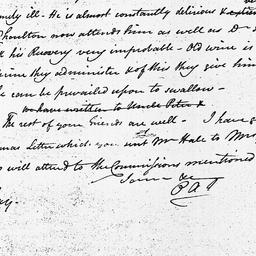 ill - He is almost constantly delirious &
now attends him as well as D
& his Recovery very improbable - Old wine is
they administer & of this they give him
he can be prevailed upon to swallow -
we have written to Uncle Peter &
The rest of your Friends are well - I have
Letter which you sent Mr Hale to Mrs
will attend to the Commissions mentioned
I am - &c
P A T